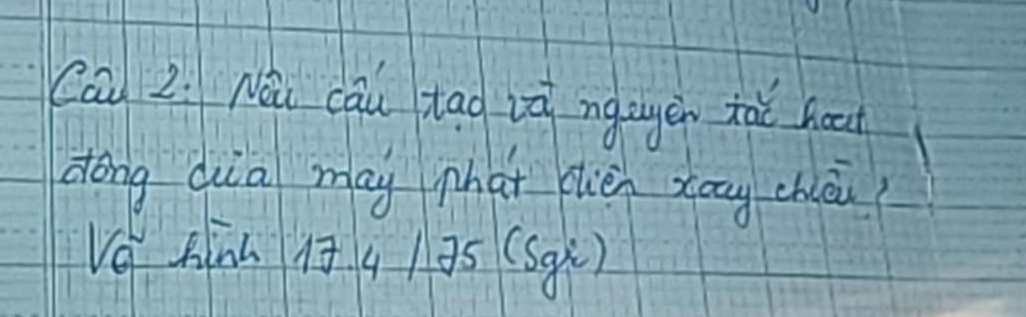 Câu 2: Nêu cấu tạo và nguyên tắc hoạt
động của máy phát điện xoay chiều?
Vẽ hình 17.4 / 75 (Sgk)